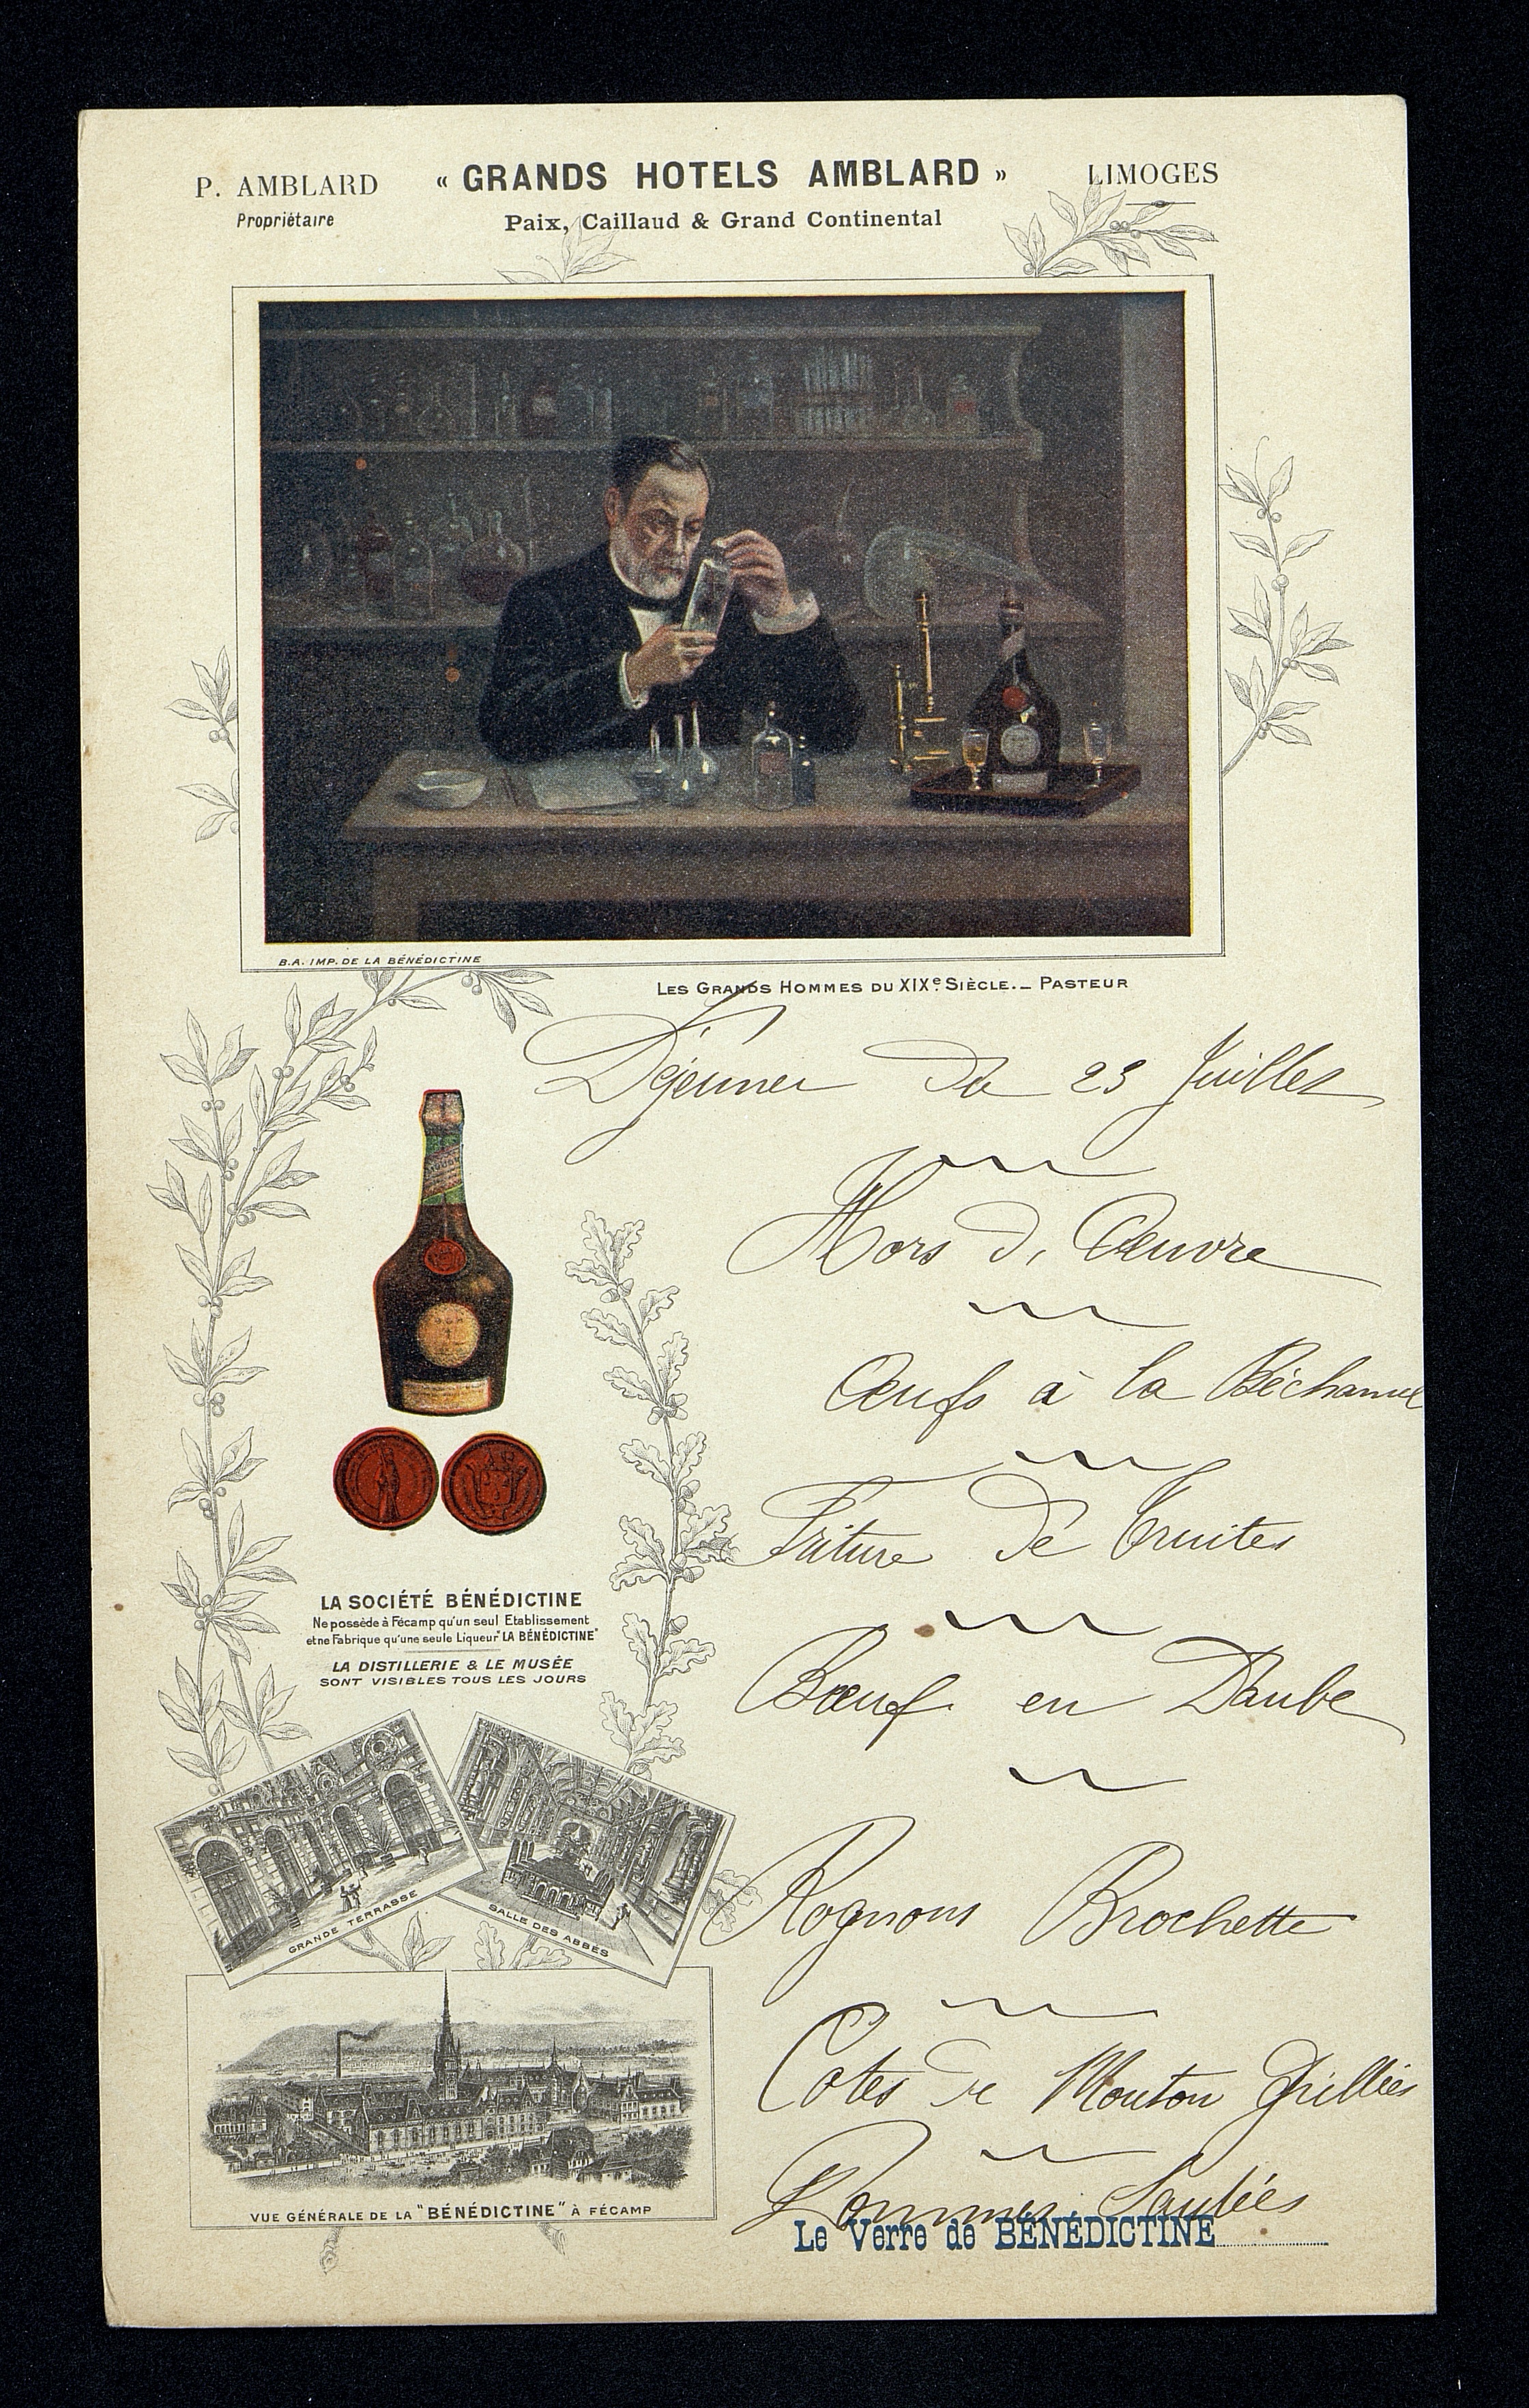 P. AMBLARD « GRANDS HOTELS AMBLARD » LIMOGES
Propriétaire Paix, Caillaud & Grand Continental
B.A. IMP. DE LA BÉNÉDICTINE
LES GRANDS HOMMES DU XIXe SIÈCLE._ PASTEUR
Déjeuner du 23 Juillet
Hors d'Oeuvre
Œufs à la Béchamel
Friture de Truites
Bœuf en Daube
Rognons Brochette
Cotes de Mouton Grillées
Pommes Sautées
Le Verre de BÉNÉDICTINE
LA SOCIÉTÉ BÉNÉDICTINE
Ne possède à Fécamp qu'un seul Etablissement
et ne Fabrique qu'une seule Liqueur "LA BÉNÉDICTINE"
LA DISTILLERIE & LE MUSÉE
SONT VISIBLES TOUS LES JOURS
GRANDE TERRASSE
SALLE DES ABBÉS
VUE GÉNÉRALE DE LA "BÉNÉDICTINE" À FÉCAMP